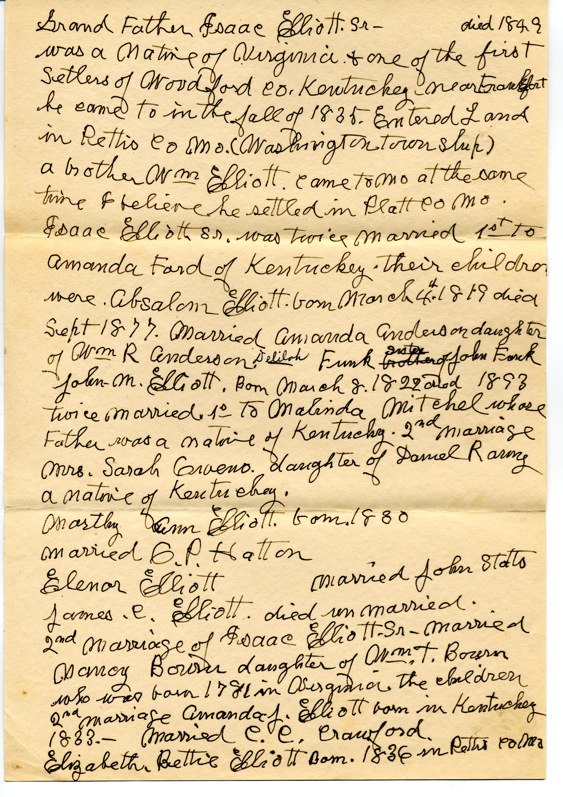 Grand Father Isaac Elliott. Sr- died 1849
was a Native of Virginia & one of the first
Settlers of Woodford co. Kentuckey near Frankfort
he came to in the fall of 1835. Entered Land
in Pettis Co Mo. (Washington township)
a brother Wm Elliott. came to Mo at the same
time I believe he settled in Platt Co Mo.
Isaac Elliott Sr. was twice Married 1st to
Amanda Ford of Kentuckey. their children
were. Absalom Elliott. born March 4th 1819 died
Sept 1877. Married Amanda Anderson daughter
of Wm R Anderson. Delilah Funk brother sister of John Funk
John. M. Elliott. Born March 8. 1822 died 1893
twice married. 1st to Malinda Mitchel whose
Father was a native of Kentuckey. 2nd Marriage
Mrs. Sarah daughter of Daniel
a native of Kentuckey.
Ann Elliott. born. 1830
Married P. Hatton
Elenor Elliott Married John Stats
James. C. Elliott. died unmarried.
2nd Marriage of Isaac Elliott. Sr- Married
Nancy Bourn daughter of Wm. T. Bourn
who was born 1781 in Virginia. the children
2nd marriage Amanda J. Elliott born in Kentuckey
1833.- Married C. C. Crawford.
Elizabeth. Bettie Elliott Born. 1836 in Pettis Co Mo